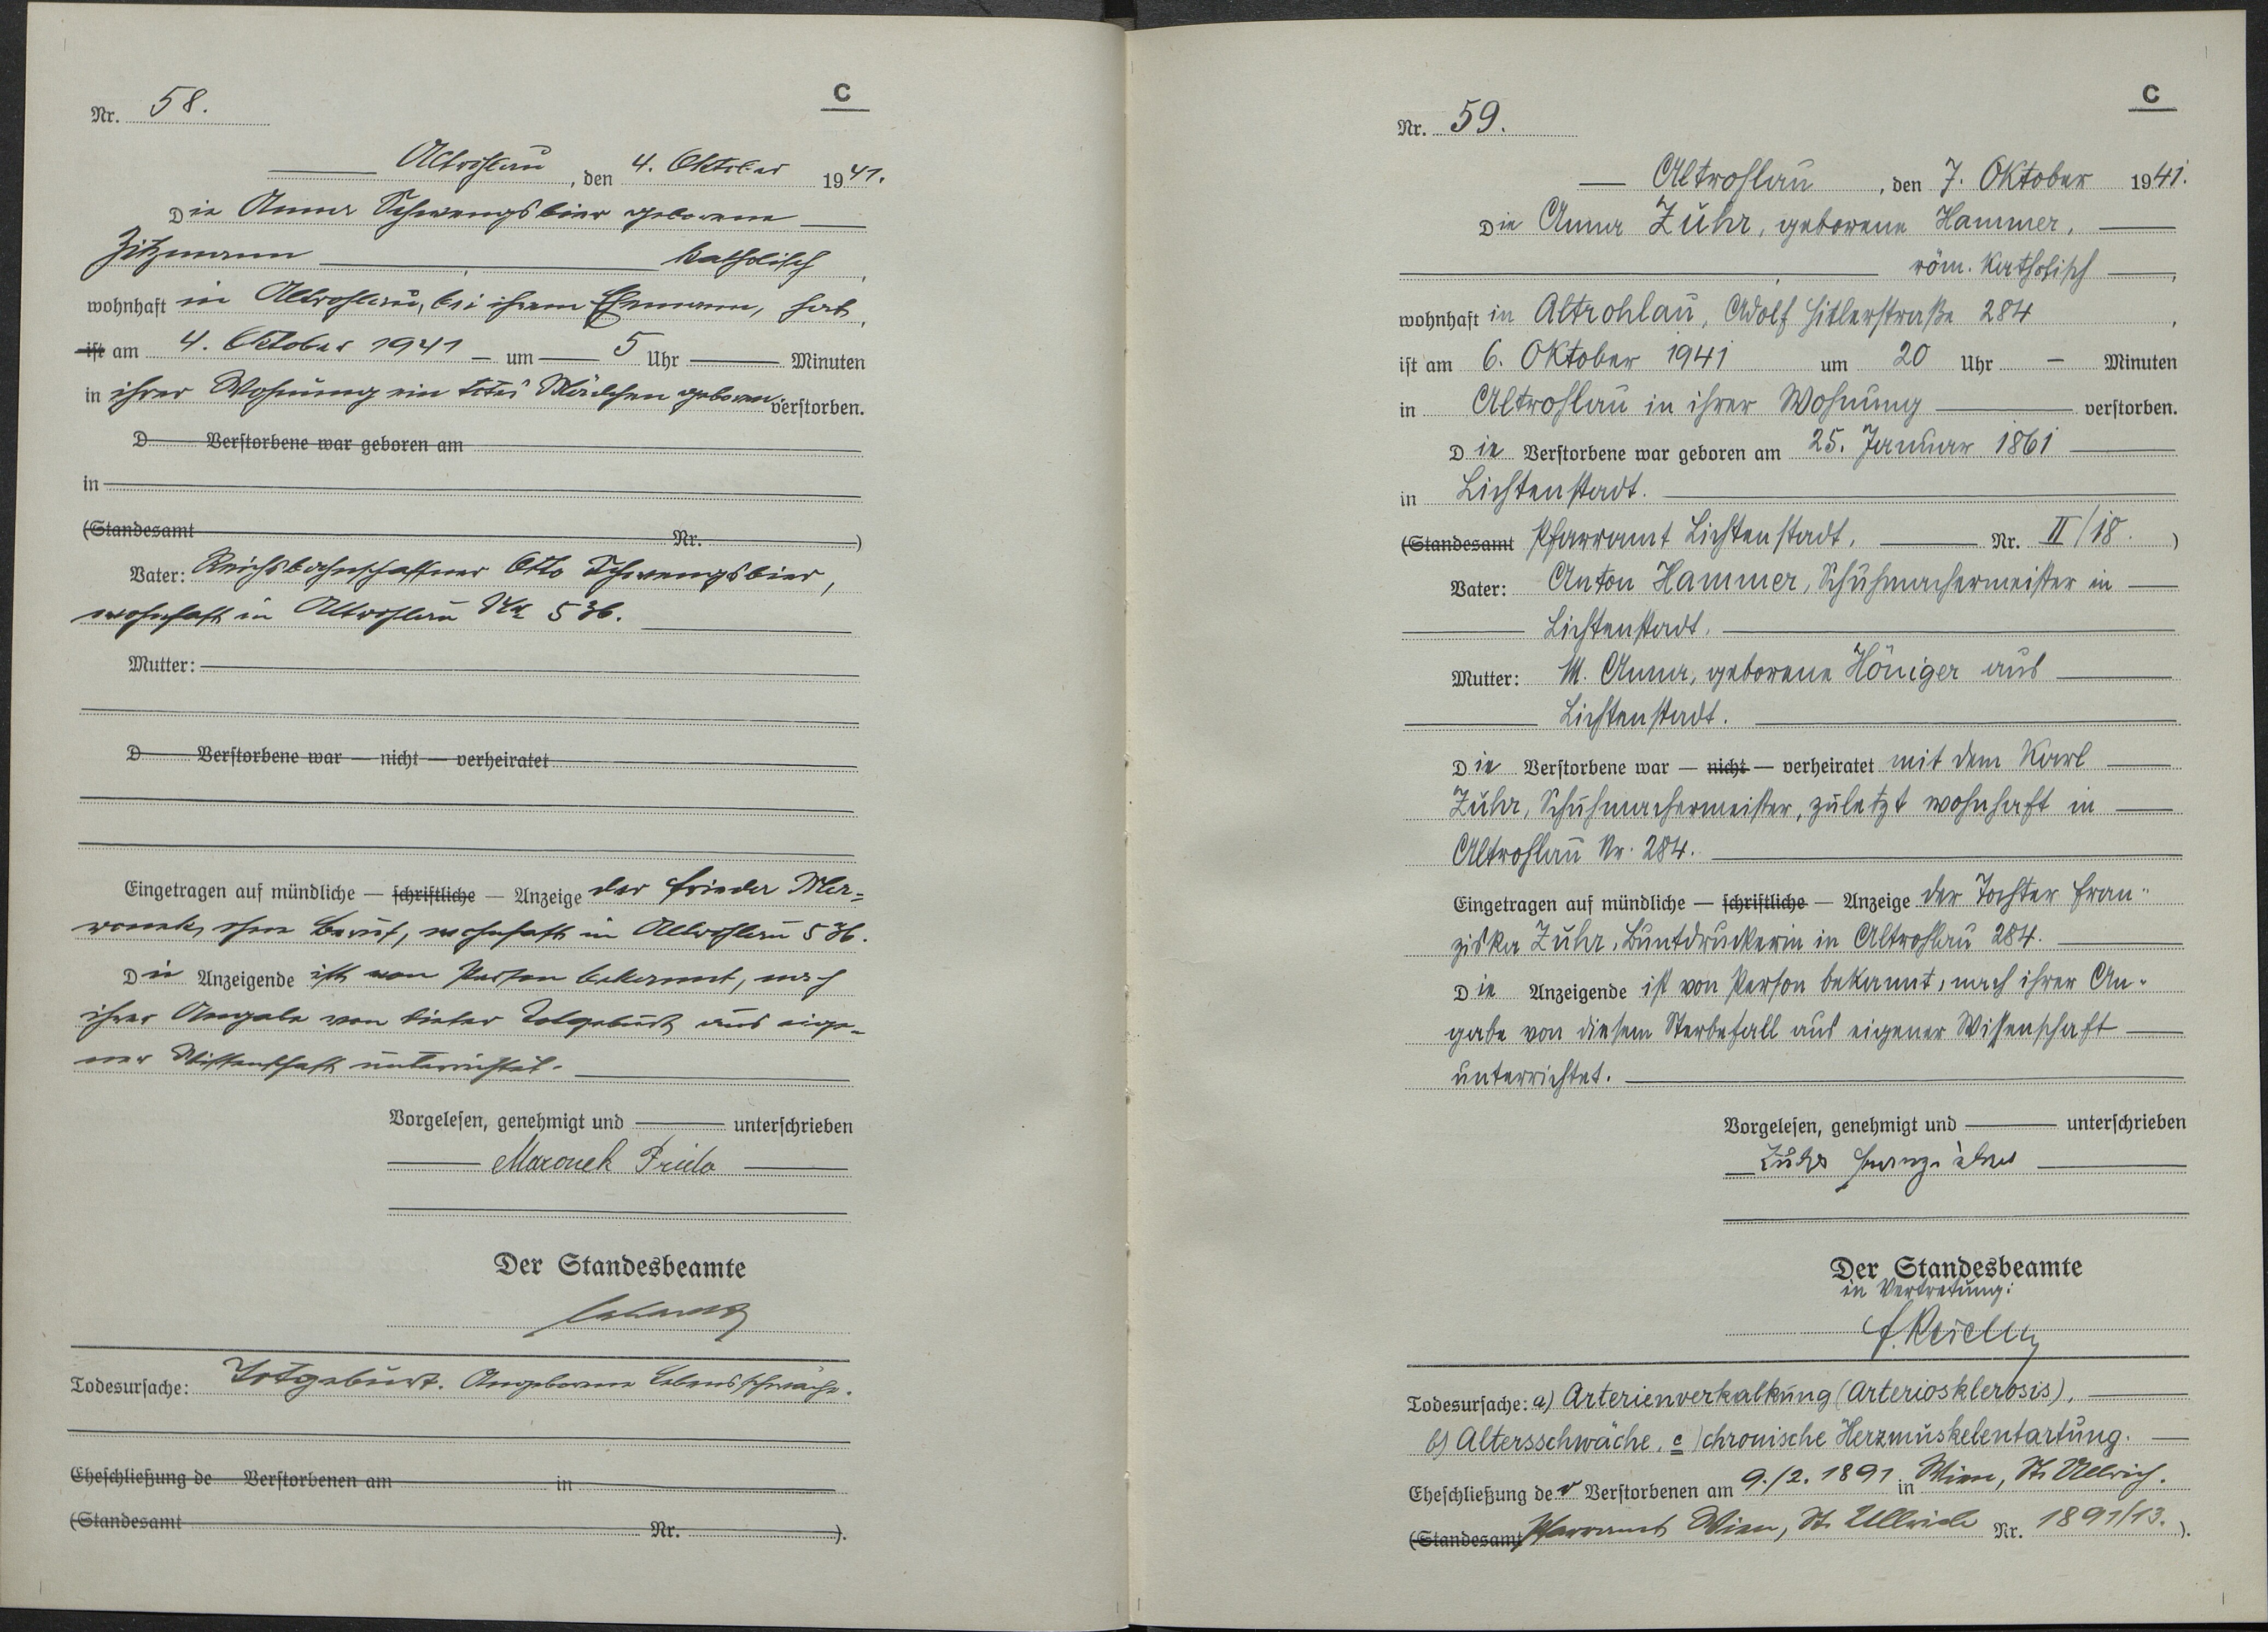 C
Nr. 58.
Altrohlau, den 4. Oktober 1941.
Die Anna Schwengsbier geborene
Zitzmann, katholisch,
wohnhaft in Altrohlau, bei ihrem Ehemann, hat,
ist am 4. Oktober 1941 um 5 Uhr Minuten
in ihrer Wohnung ein totes Mädchen geboren. verstorben.
D Verstorbene war geboren am
in
(Standesamt Nr. )
Vater: Reichsbahnschaffner Otto Schwengsbier,
wohnhaft in Altrohlau Nr. 536.
Mutter:
D Verstorbene war — nicht — verheiratet
Eingetragen auf mündliche — schriftliche — Anzeige der Frieda Mar=
wonek, ohne Beruf, wohnhaft in Altrohlau 536.
Die Anzeigende ist von Person bekannt, nach
ihrer Angabe von dieser Totgeburt aus eige-
ner Wissenschaft unterrichtet.
Vorgelesen, genehmigt und unterschrieben
Frieda
Der Standesbeamte
Todesursache: Totgeburt. Angeborene Lebensschwäche.
Eheschließung de Verstorbenen am in
(Standesamt Nr. ).
C
Nr. 59.
Altrohlau, den 7. Oktober 1941.
Die Anna Zuhr, geborene Hammer,
röm. katholisch,
wohnhaft in Altrohlau, Adolf Hitlerstraße 284,
ist am 6. Oktober 1941 um 20 Uhr — Minuten
in Altrohlau in ihrer Wohnung verstorben.
Die Verstorbene war geboren am 25. Januar 1861
in Lichtenstadt.
(Standesamt Pfarramt Lichtenstadt. Nr. II/18. )
Vater: Anton Hammer, Schuhmachermeister in
Lichtenstadt.
Mutter: M. Anna, geborene Höniger aus
Lichtenstadt.
Die Verstorbene war — nicht — verheiratet mit dem Karl
Zuhr, Schuhmachermeister, zuletzt wohnhaft in
Altrohlau Nr. 284.
Eingetragen auf mündliche — schriftliche — Anzeige der Tochter Fran=
ziska Zuhr, Buntdruckerin in Altrohlau 284.
Die Anzeigende ist von Person bekannt, nach ihrer An-
gabe von diesem Sterbefall aus eigener Wissenschaft
unterrichtet.
Vorgelesen, genehmigt und unterschrieben
Zuhr Franziska
Der Standesbeamte
in Vertretung:
Todesursache: a) Arterienverkalkung (Arteriosklerosis),
b) Altersschwäche, c) chronische Herzmuskelentartung.
Eheschließung der Verstorbenen am 9./2. 1891 in Wien, St. Ullrich.
(Standesamt Pfarramt Wien, St. Ullrich Nr. 1891/13. ).